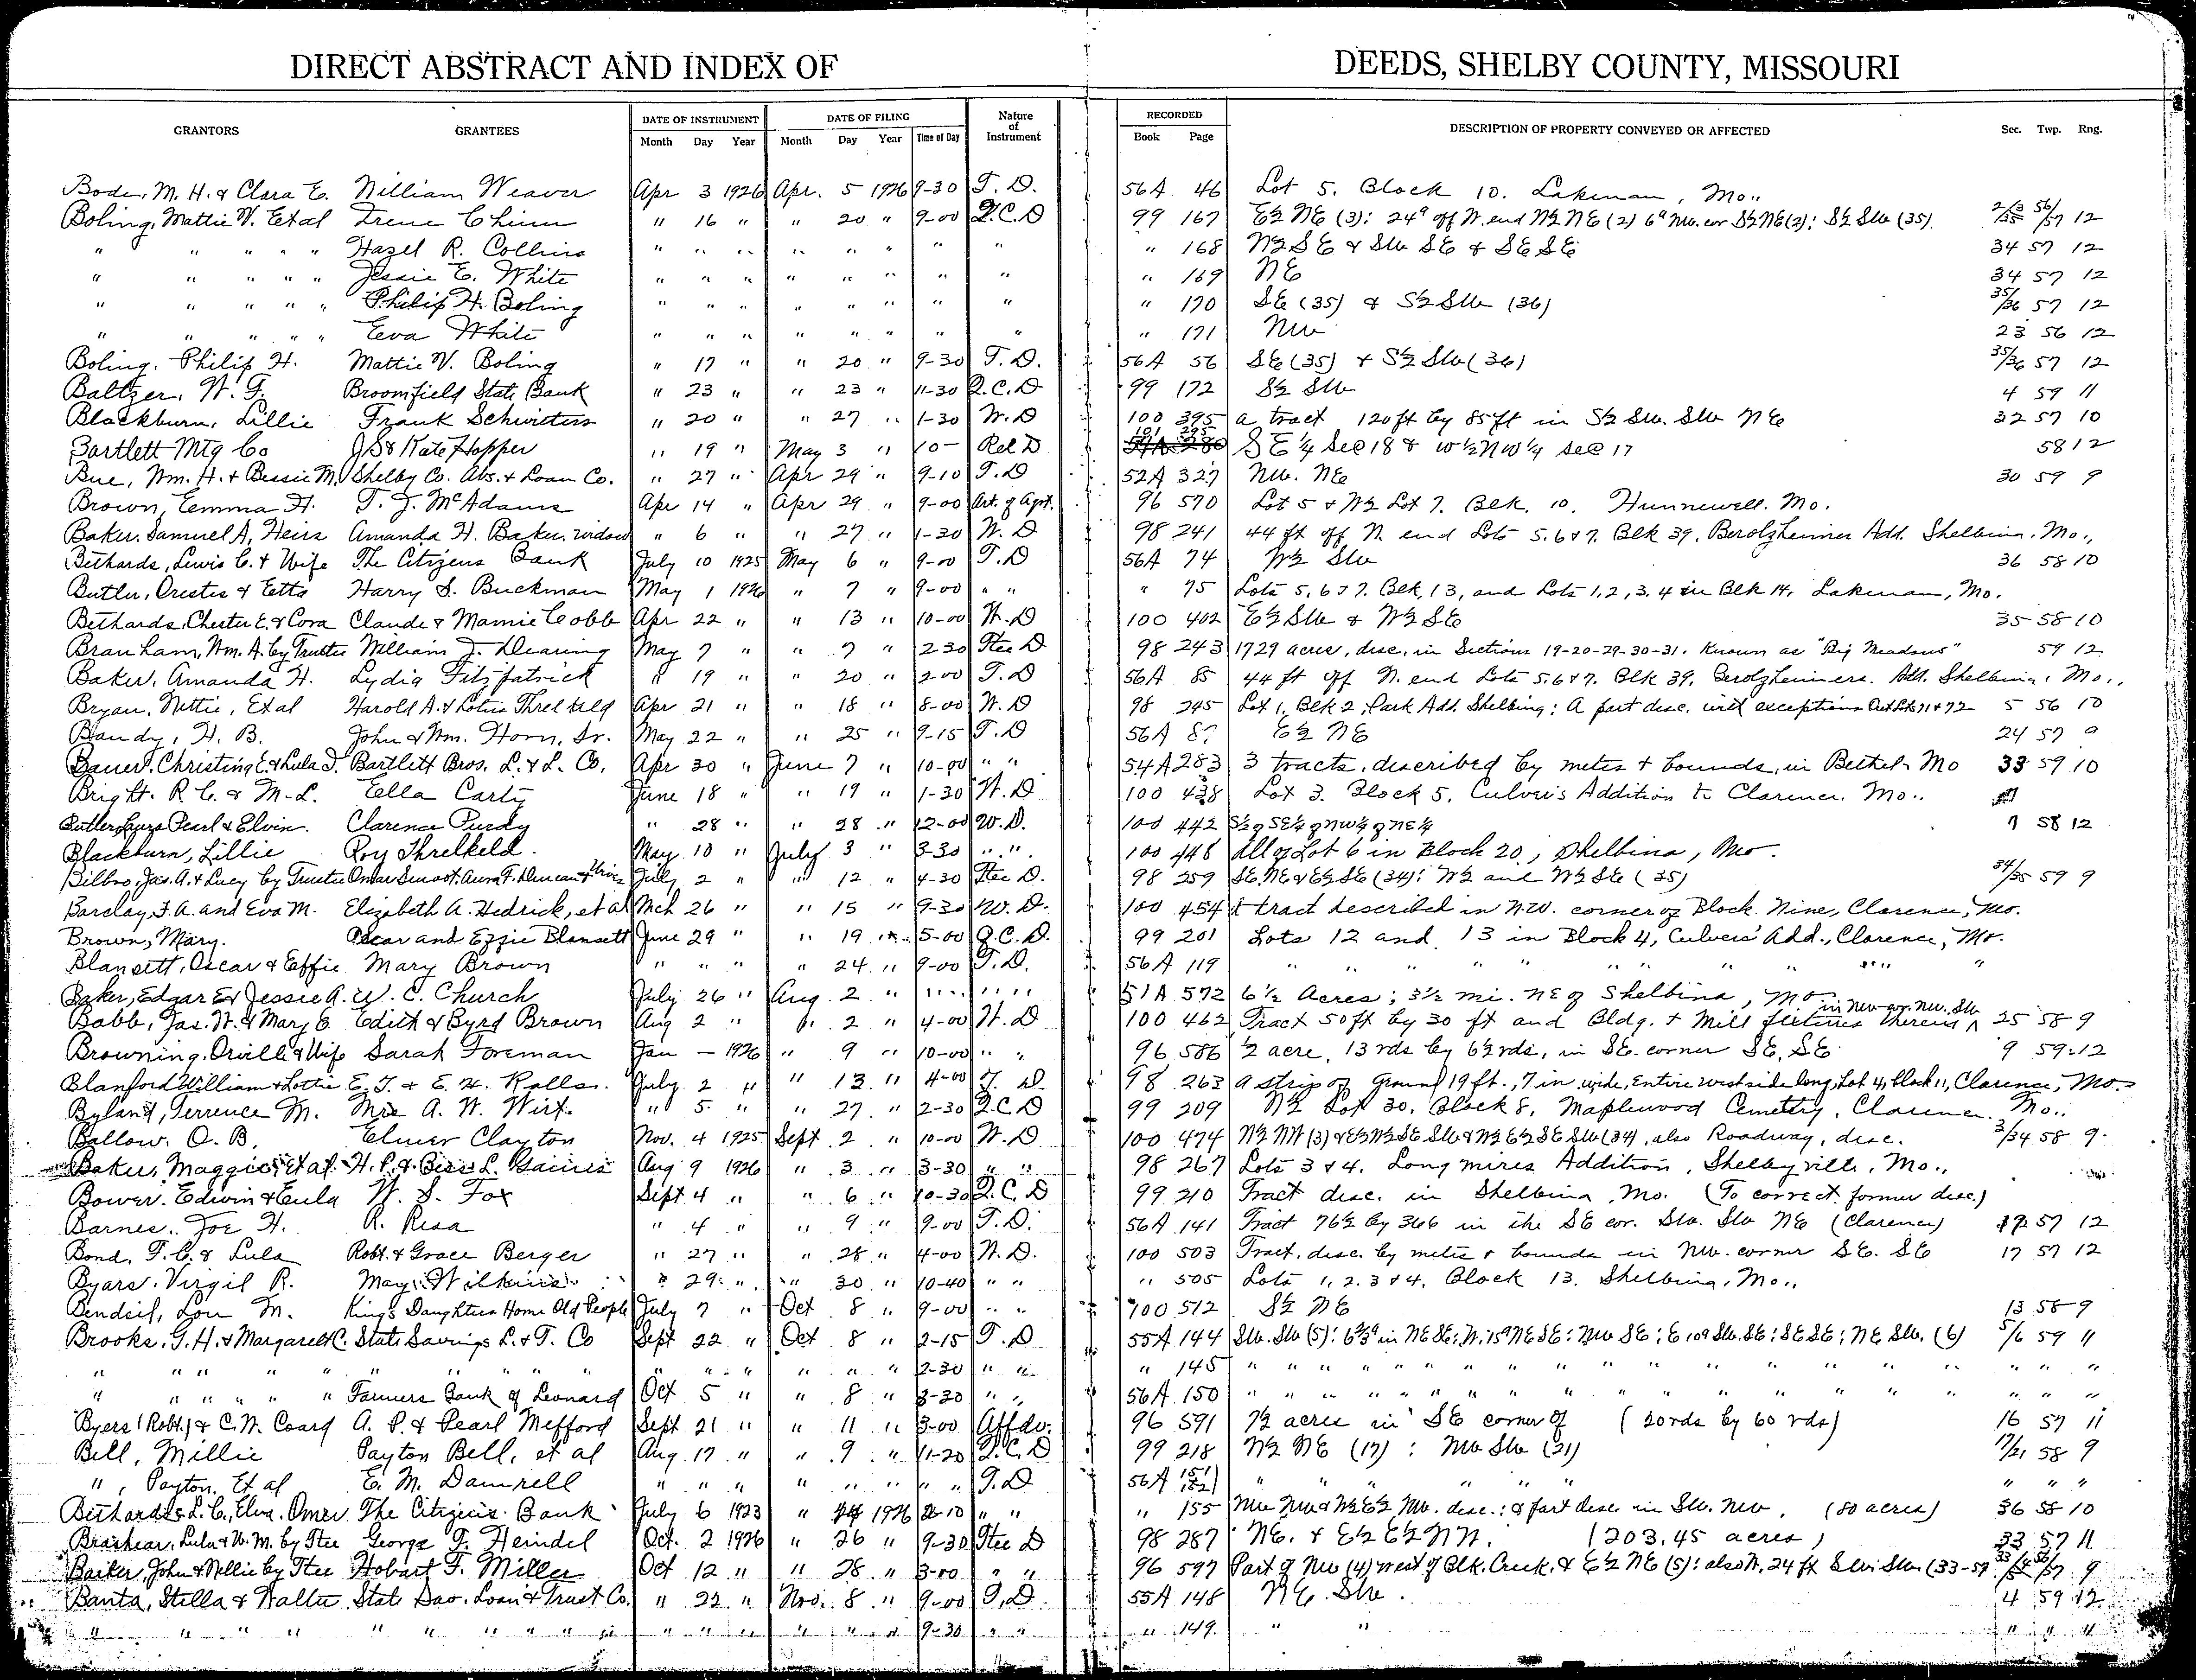 DIRECT ABSTRACT AND INDEX OF DEEDS, SHELBY COUNTY, MISSOURI
GRANTORS GRANTEES DATE OF INSTRUMENT DATE OF FILING Nature of Instrument RECORDED DESCRIPTION OF PROPERTY CONVEYED OR AFFECTED Sec. Twp. Rng.
Month Day Year Month Day Year Time of Day Book Page
Bode, M. H. & Clara E. William Weaver Apr 3 1926 Apr. 5 1926 9-30 T. D. 56A 46 Lot 5. Block 10. Lakenan, Mo..
Boling, Mattie V. Et al Irene Chinn " 16 " " 20 " 9-00 Q.C.D 99 167 E½ NE (3): 24ª off N. end W½ NE (2) 6ª NW. cor S½ NE (2); S½ SW (35). 2/3/35 56/57 12
" " " " " Hazel R. Collins " " " " " " " " " 168 W½ SE & SW SE & SE SE 34 57 12
" " " " " Jessie E. White " " " " " " " " " 169 NE 34 57 12
" " " " " Philip H. Boling " " " " " " " " " 170 SE (35) & S½ SW (36) 35/36 57 12
" " " " " Eva White " " " " " " " " " 171 NW 23 56 12
Boling, Philip H. Mattie V. Boling " 17 " " 20 " 9-30 T. D. 56A 56 SE (35) + S½ SW (36) 35/36 57 12
Baltzer, W. F. Broomfield State Bank " 23 " " 23 " 11-30 Q.C.D 99 172 S½ SW 4 59 11
Blackburn, Lillie Frank Schwitters " 20 " " 27 " 1-30 W. D 100 395 A tract 120 ft by 85 ft in S½ SW. SW NE 32 57 10
Bartlett Mtg Co J S & Kate Hopper " 19 " May 3 " 10- Rel D 101 295 SE ¼ Sec 18 & W ½ NW ¼ Sec 17 58 12
Bue, Wm. H. + Bessie M. Shelby Co. Abs. + Loan Co. " 27 " Apr 29 " 9-10 T. D 52A 327 NW. NE 30 59 9
Brown, Emma H. T. J. McAdams Apr 14 " Apr 29 " 9-00 Art. of Agrt. 96 570 Lot 5 + W½ Lot 7. Blk. 10. Hunnewell. Mo.
Baker, Samuel A, Heirs Amanda H. Baker, widow " 6 " " 27 " 1-30 W. D 98 241 44 ft off N. end Lots 5.6 & 7. Blk 39, Berolzheimer Add. Shelbina, Mo.,
Bethards, Lewis C. & Wife The Citizens Bank July 10 1925 May 6 " 9-00 T. D 56A 74 W½ SW 36 58 10
Butler, Orestes & Etta Harry S. Buckman May 1 1926 " 7 " 9-00 " " " 75 Lots 5, 6 & 7. Blk, 13, and Lots 1, 2, 3. 4 in Blk 14, Lakenan, Mo.
Bethards, Chester E. & Cora Claude & Mamie Cobb Apr 22 " " 13 " 10-00 W. D 100 402 E½ SW & W½ SE 35 58 10
Branham, Wm. A. by Trustee William J. Dearing May 7 " " 7 " 2-30 Stee D 98 243 1729 acres, desc. in Sections 19-20-29-30-31. Known as "Big Meadows" 59 12
Baker, Amanda H. Lydia Fitzpatrick " 19 " " 20 " 2-00 T. D 56A 85 44 ft off N. end Lots 5.6 & 7. Blk 39. Berolzheimers. Add. Shelbina, Mo.,
Bryan, Nettie, Et al Harold A. & Lotus Threlkeld Apr 21 " " 18 " 8-00 W. D 98 245 Lot 1, Blk 2, Park Add. Shelbina; A part desc. with exceptions Out Lts 71 + 72 5 56 10
Bandy, H. B. John & Wm. Horn, Sr. May 22 " " 25 " 9-15 T. D 56A 87 E½ NE 24 57 9
Bauer, Christing E. & Lula J. Bartlett Bros. L. & L. Co. Apr 30 " June 7 " 10-00 " " 54A 283 3 tracts, described by metes + bounds, in Bethel, Mo 33 59 10
Bright. R. C. & M. L. Ella Carty June 18 " " 19 " 1-30 W. D 100 438 Lot 3. Block 5, Culver's Addition to Clarence, Mo..
Butler, Laura Pearl & Elvin. Clarence Purdy " 28 " " 28 " 12-00 W. D. 100 442 S½ of SE¼ of NW¼ of NE¼ 7 58 12
Blackburn, Lillie Roy Threlkeld. May 10 " July 3 " 3-30 " " 100 448 All of Lot 6 in Block 20, Shelbina, Mo.
Bilbro, Jas. A. & Lucy by Trustee Omar Sumast. Anna F. Duncan + " July 2 " " 12 " 4-30 Stee D. 98 259 SE. NE & E½ SE (34): W½ and W½ SE (35) 34/35 59 9
Barclay, F. A. and Eva M. Elizabeth A. Hedrick, et al Mch 26 " " 15 " 9-30 W. D. 100 454 A tract described in N.W. corner of Block Nine, Clarence, Mo.
Brown, Mary. Oscar and Effie Blansett June 29 " " 19 " 5-00 Q. C. D. 99 201 Lots 12 and 13 in Block 4, Culvers' Add., Clarence, Mo.
Blansett, Oscar & Effie Mary Brown " " " " 24 " 9-00 T. D. 56A 119 " " " " " " " " " "
Baker, Edgar E & Jessie A. W. C. Church July 26 " Aug. 2 " " " " " 51A 572 6½ Acres; 3½ mi. NE of Shelbina, Mo
Babb, Jas. W. & Mary E. Edith & Byrd Brown Aug 2 " " 2 " 4-00 W. D 100 462 Tract 50 ft by 30 ft and Bldg. + Mill fixtures thereon in NW cor. NW. SW 25 58 9
Browning, Orville & Wife Sarah Foreman Jan — 1926 " 9 " 10-00 " " 96 586 ½ acre, 13 rds by 6½ rds, in SE. corner SE, SE 9 59 12
Blanford William + Lottie E. T. & E. H. Ralls. July 2 " " 13 " 4-00 T. D. 98 263 A strip of Ground 19 ft., 7 in wide, Entire west side long, Lot 4, block 11, Clarence, Mo.
Byland, Terrence M. Mrs A. W. Wirt. " 5. " " 27 " 2-30 Q.C.D 99 209 N½ Lot 30, Block 8, Maplewood Cemetery, Clarence. Mo..
Ballow. O. B. Elmer Clayton Nov. 4 1925 Sept 2 " 10-00 W. D 100 474 W½ NW (3) & E½ W½ SE SW & W½ E½ SE SW (34), also Roadway, desc. 3/34 58 9
Baker, Maggie, Et al. H. P. & Bess L. Gaines Aug 9 1926 " 3 " 3-30 " " 98 267 Lots 3 & 4. Longmires Addition, Shelbyville, Mo..
Bower. Edwin & Eula W. S. Fox Sept 4 " " 6 " 10-30 Q.C.D 99 210 Tract desc. in Shelbina, Mo. (To correct former desc.)
Barnes, Joe H. R. Risa " 4 " " 9 " 9-00 T. D. 56A 141 Tract 76½ by 366 in the SE cor. SW. SW NE (Clarence) 17 57 12
Bond, T. C. & Lula Robt. & Grace Berger " 27 " " 28 " 4-00 W. D. 100 503 Tract, desc. by metes + bounds in NW. corner SE. SE 17 57 12
Byars, Virgil R. May Wilkins " 29 " " 30 " 10-40 " " " 505 Lots 1, 2. 3 & 4, Block 13. Shelbina, Mo..
Bendeil, Lou M. Kings Daughters Home Old People July 7 " Oct 8 " 9-00 " " 100 512 S½ NE 13 58 9
Brooks, G. H. & Margarett C. State Savings L. & T. Co Sept 22 " Oct 8 " 2-15 T. D 55A 144 SW. SW (5): 6⅔ª in NE SE: N. 15ª NE SE: NW SE: E 10ª SW. SE: SE SE: NE SW. (6) 5/6 59 11
" " " " " " " " " " " " " " 2-30 " " " 145 " " " " " " " " " " " " " "
" " " " " " Farmers Bank of Leonard Oct 5 " " 8 " 3-30 " " 56A 150 " " " " " " " " " " " " " "
Byers (Robt.) & C. W. Coard A. P. & Pearl Mefford Sept. 21 " " 11 " 3-00 Affdv. 96 591 7½ acres in SE corner of (20 rds by 60 rds) 16 57 11
Bell, Millie Payton Bell, et al Aug 17 " " 9 " 11-20 Q.C.D 99 218 N½ NE (17): NW SW (21) 17/21 58 9
", Payton, Et al E. M. Damrell " " " " " " " " T. D 56A 151/152 " " " " " " " "
Bethards, L. C., Elva, Omer The Citizens Bank July 6 1923 " 1926 2-10 " " " 155 NW NW & W½ E½ NW. desc.: & part desc in SW. NW, (80 acres) 36 58 10
Brashear, Lula & W. M. by Stee George F. Heindel Oct. 2 1926 " 26 " 9-30 Stee D 98 287 NE. & E½ E½ NW. (203.45 acres) 33 57 11
Barker, John & Nellie by Stee Hobart F. Miller Oct 12 " " 28 " 3-00 " " 96 597 Part of NW (4) west of Blk. Creek, & E½ NE (5): also N. 24 ft SW. SW. (33-57 9
Banta, Stella & Walter State Sav. Loan & Trust Co. " 22 " Nov. 8 " 9-00 T. D 55A 148 NE. SW. 4 59 12
" " " " " " " " " " " " " " " 9-30 " " " 149 " " " " "